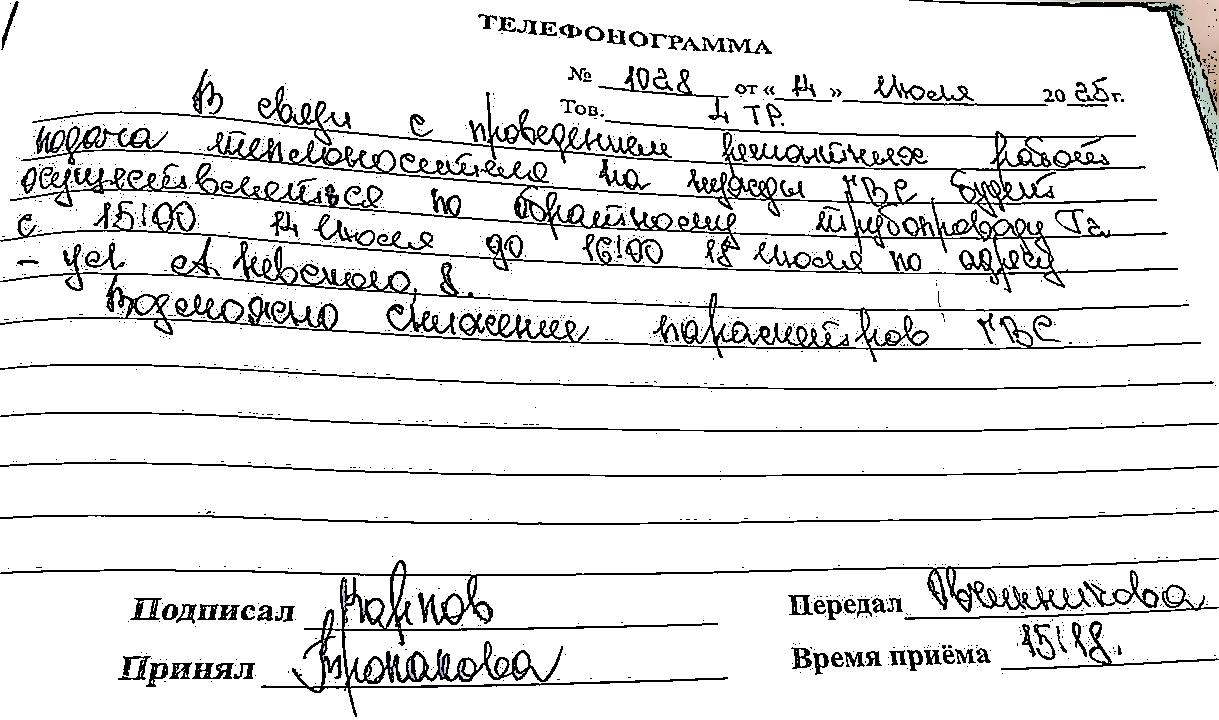 ТЕЛЕФОНОГРАММА
№ 1028 от « 14 » июля 20 25 г.
Тов. 4 ТР.
В связи с проведением ремонтных работ
подача теплоносителя на нужды ГВС будет
осуществляться по обратному трубопроводу Т2
с 15:00 14 июля до 16:00 18 июля по адресу
- ул. А. Невского, 8.
Возможно снижение параметров ГВС.
Подписал Карпов
Передал
Принял
Время приёма 15:18.